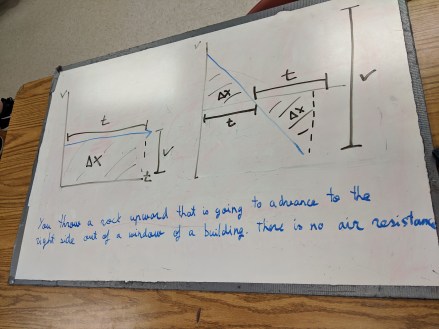 v
t
Δx
v
t
v
t
Δx
t
Δx
v
You throw a rock upward that is going to advance to the
right side out of a window of a building. There is no air resistance